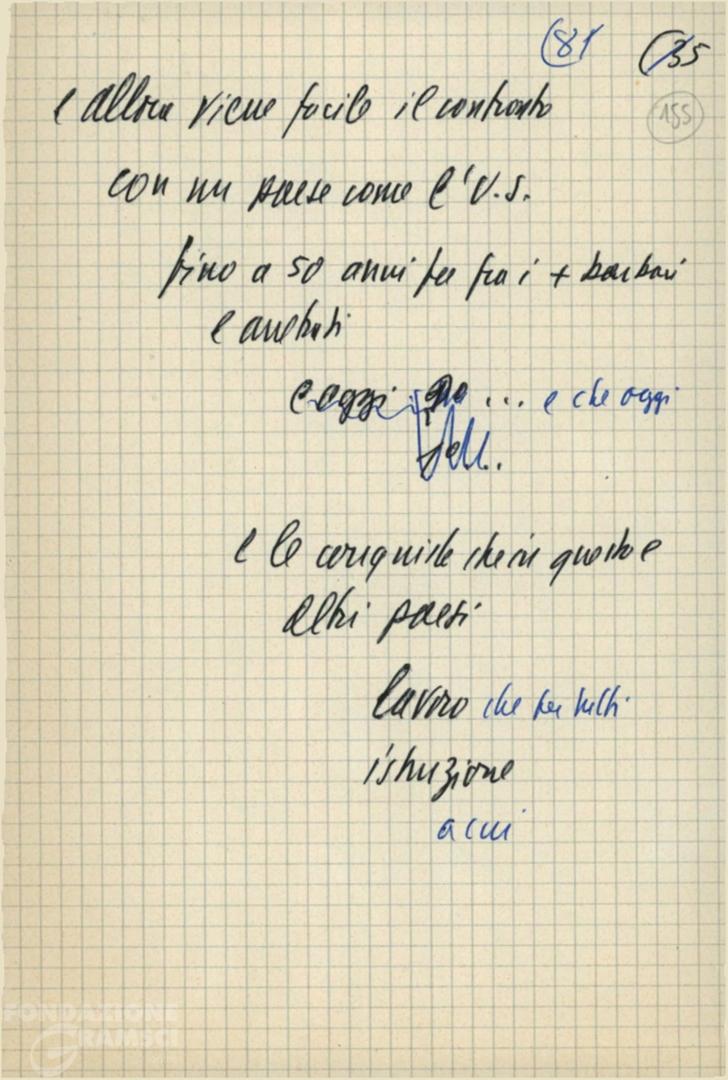 (81 (35
155
e allora viene facile il confronto
con un paese come l'U.S.
fino a 50 anni fa fra i + barbari
e arretrati
e oggi ... e che oggi
e le conquiste che in questo e
altri paesi
lavoro che per tutti
istruzione
a cui
FONDAZIONE
GRAMSCI